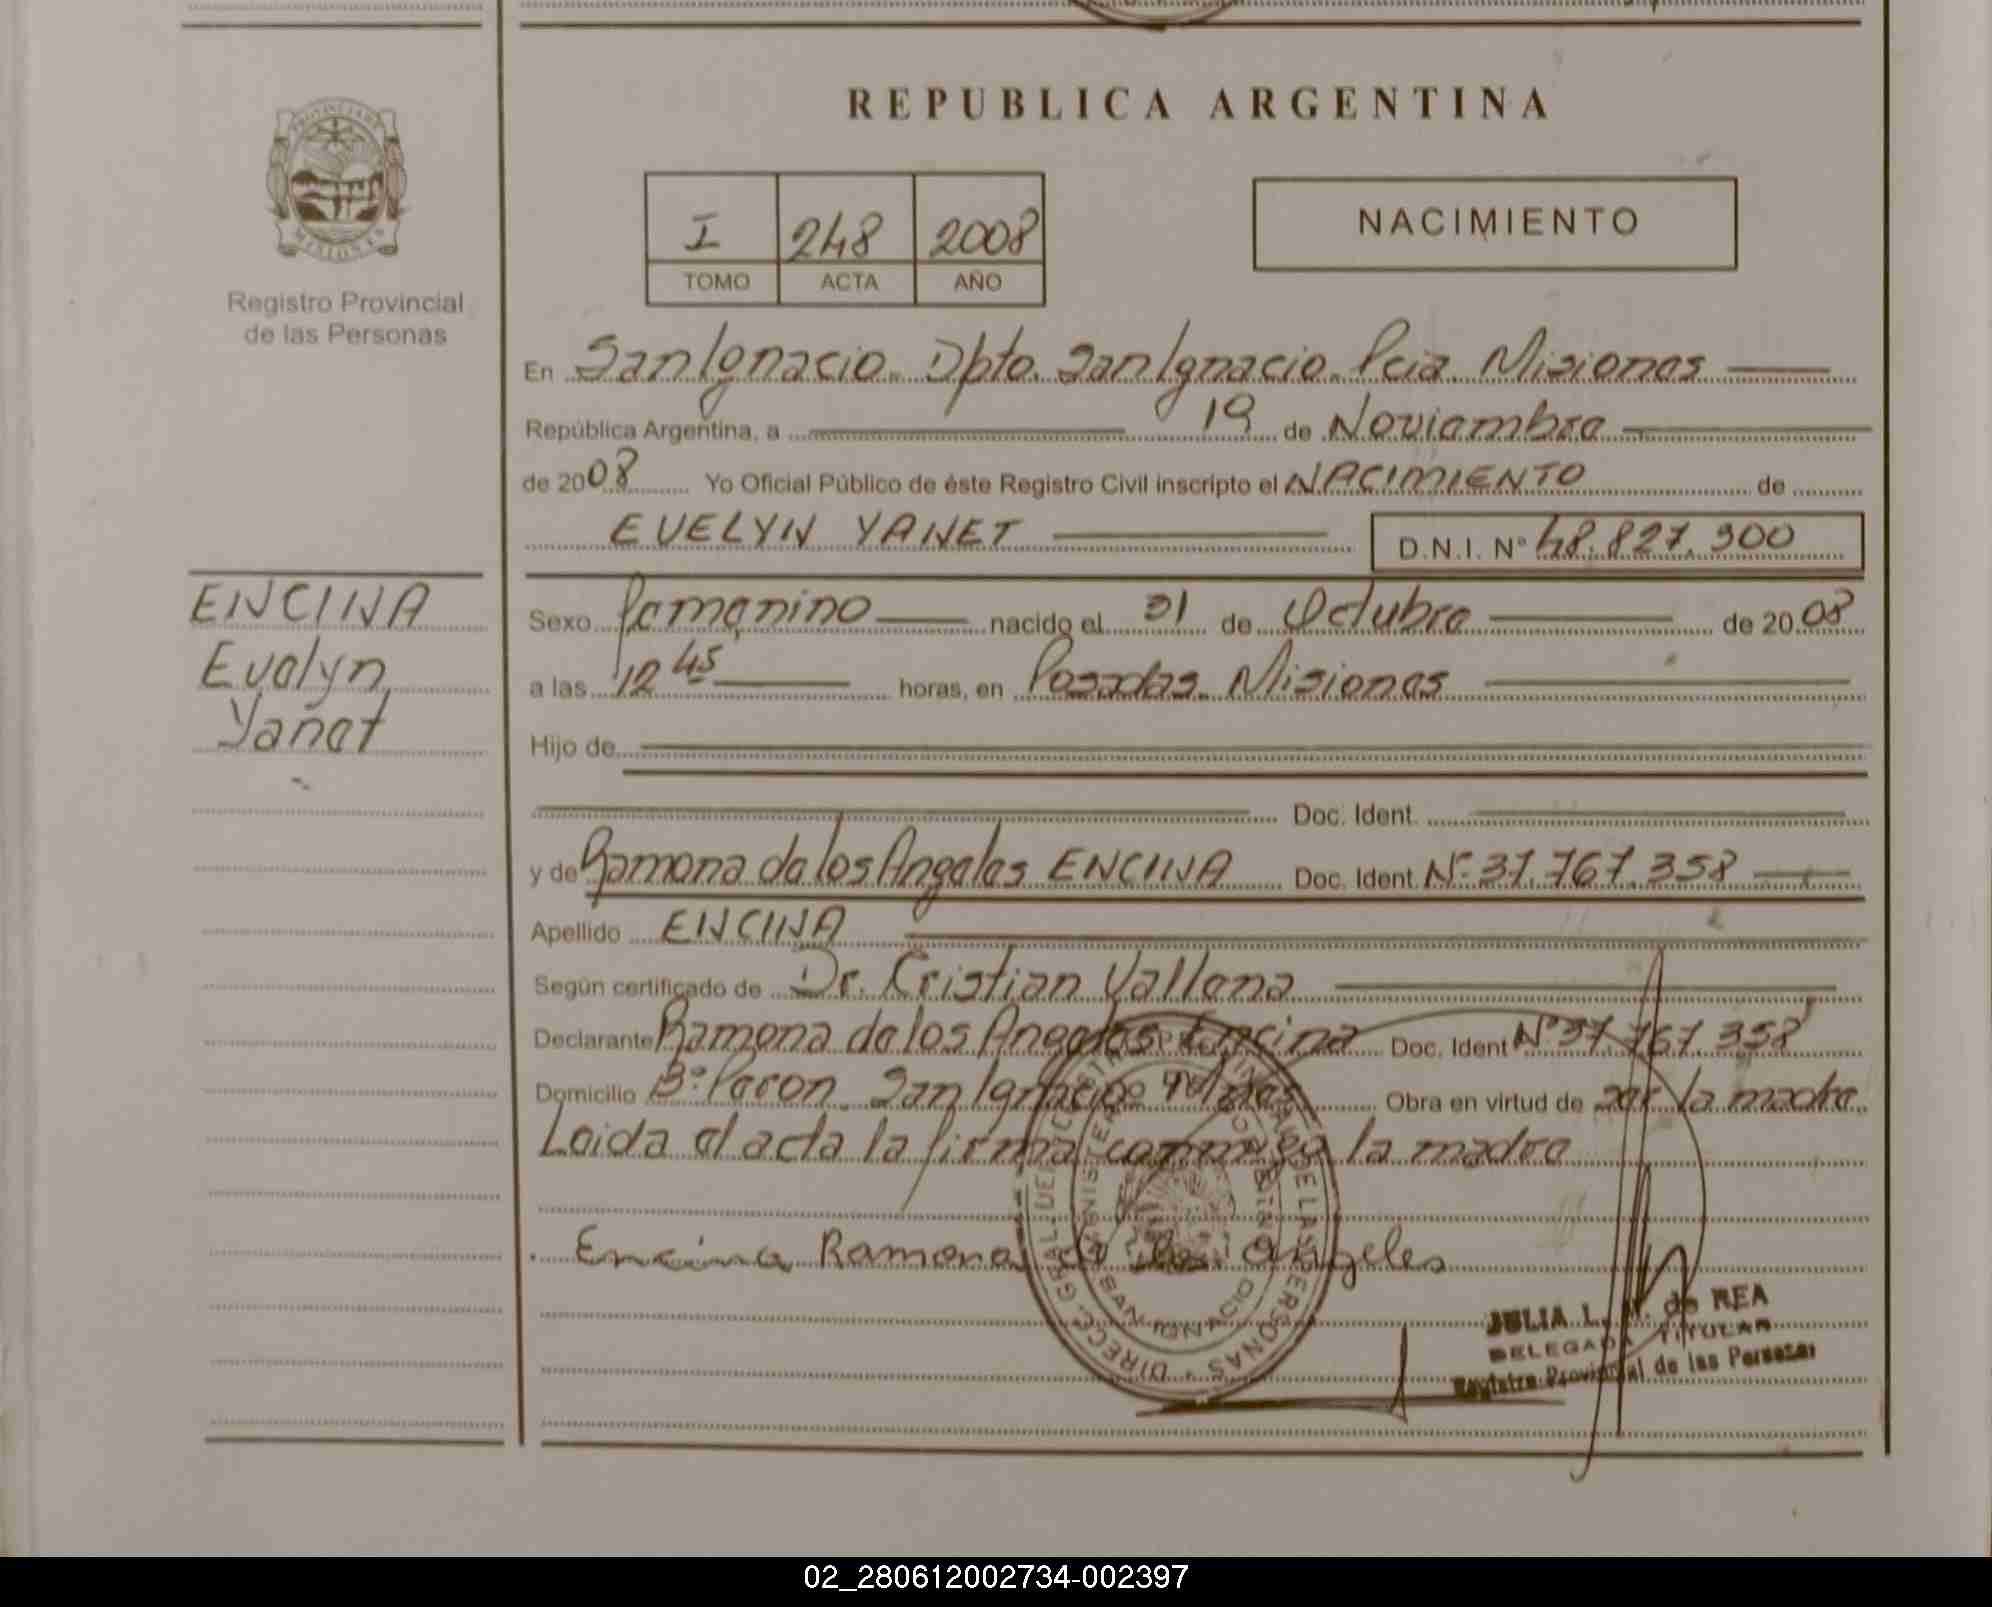 REPUBLICA ARGENTINA
I 248 2008
TOMO ACTA AÑO
NACIMIENTO
PROVINCIA DE MISIONES
Registro Provincial
de las Personas
En San Ignacio. Dpto. San Ignacio. Pcia Misiones
República Argentina, a 19 de Noviembre
de 2008 Yo Oficial Público de éste Registro Civil inscripto el NACIMIENTO de
EVELYN YANET D.N.I. Nº 48.827.300
ENCINA
Evelyn
Yanet
Sexo Femenino nacido el 31 de Octubre de 2008
a las 12 45 horas, en Posadas. Misiones
Hijo de
Doc. Ident.
y de Ramona de los Angeles ENCINA Doc. Ident. Nº 37.767.358
Apellido ENCINA
Según certificado de Dr. Cristian
Declarante Ramona de los Angeles Encina Doc. Ident Nº 37.767.358
Domicilio Bº San Ignacio Obra en virtud de ser la madre
Leida el acta la firma conmigo la madre
Encina Ramona de los Angeles
DIREC. GRAL. DEL DE LAS PERSONAS
SAN IGNACIO
JULIA L. de REA
DELEGADA TITULAR
Registro Provincial de las Personas
02_280612002734-002397